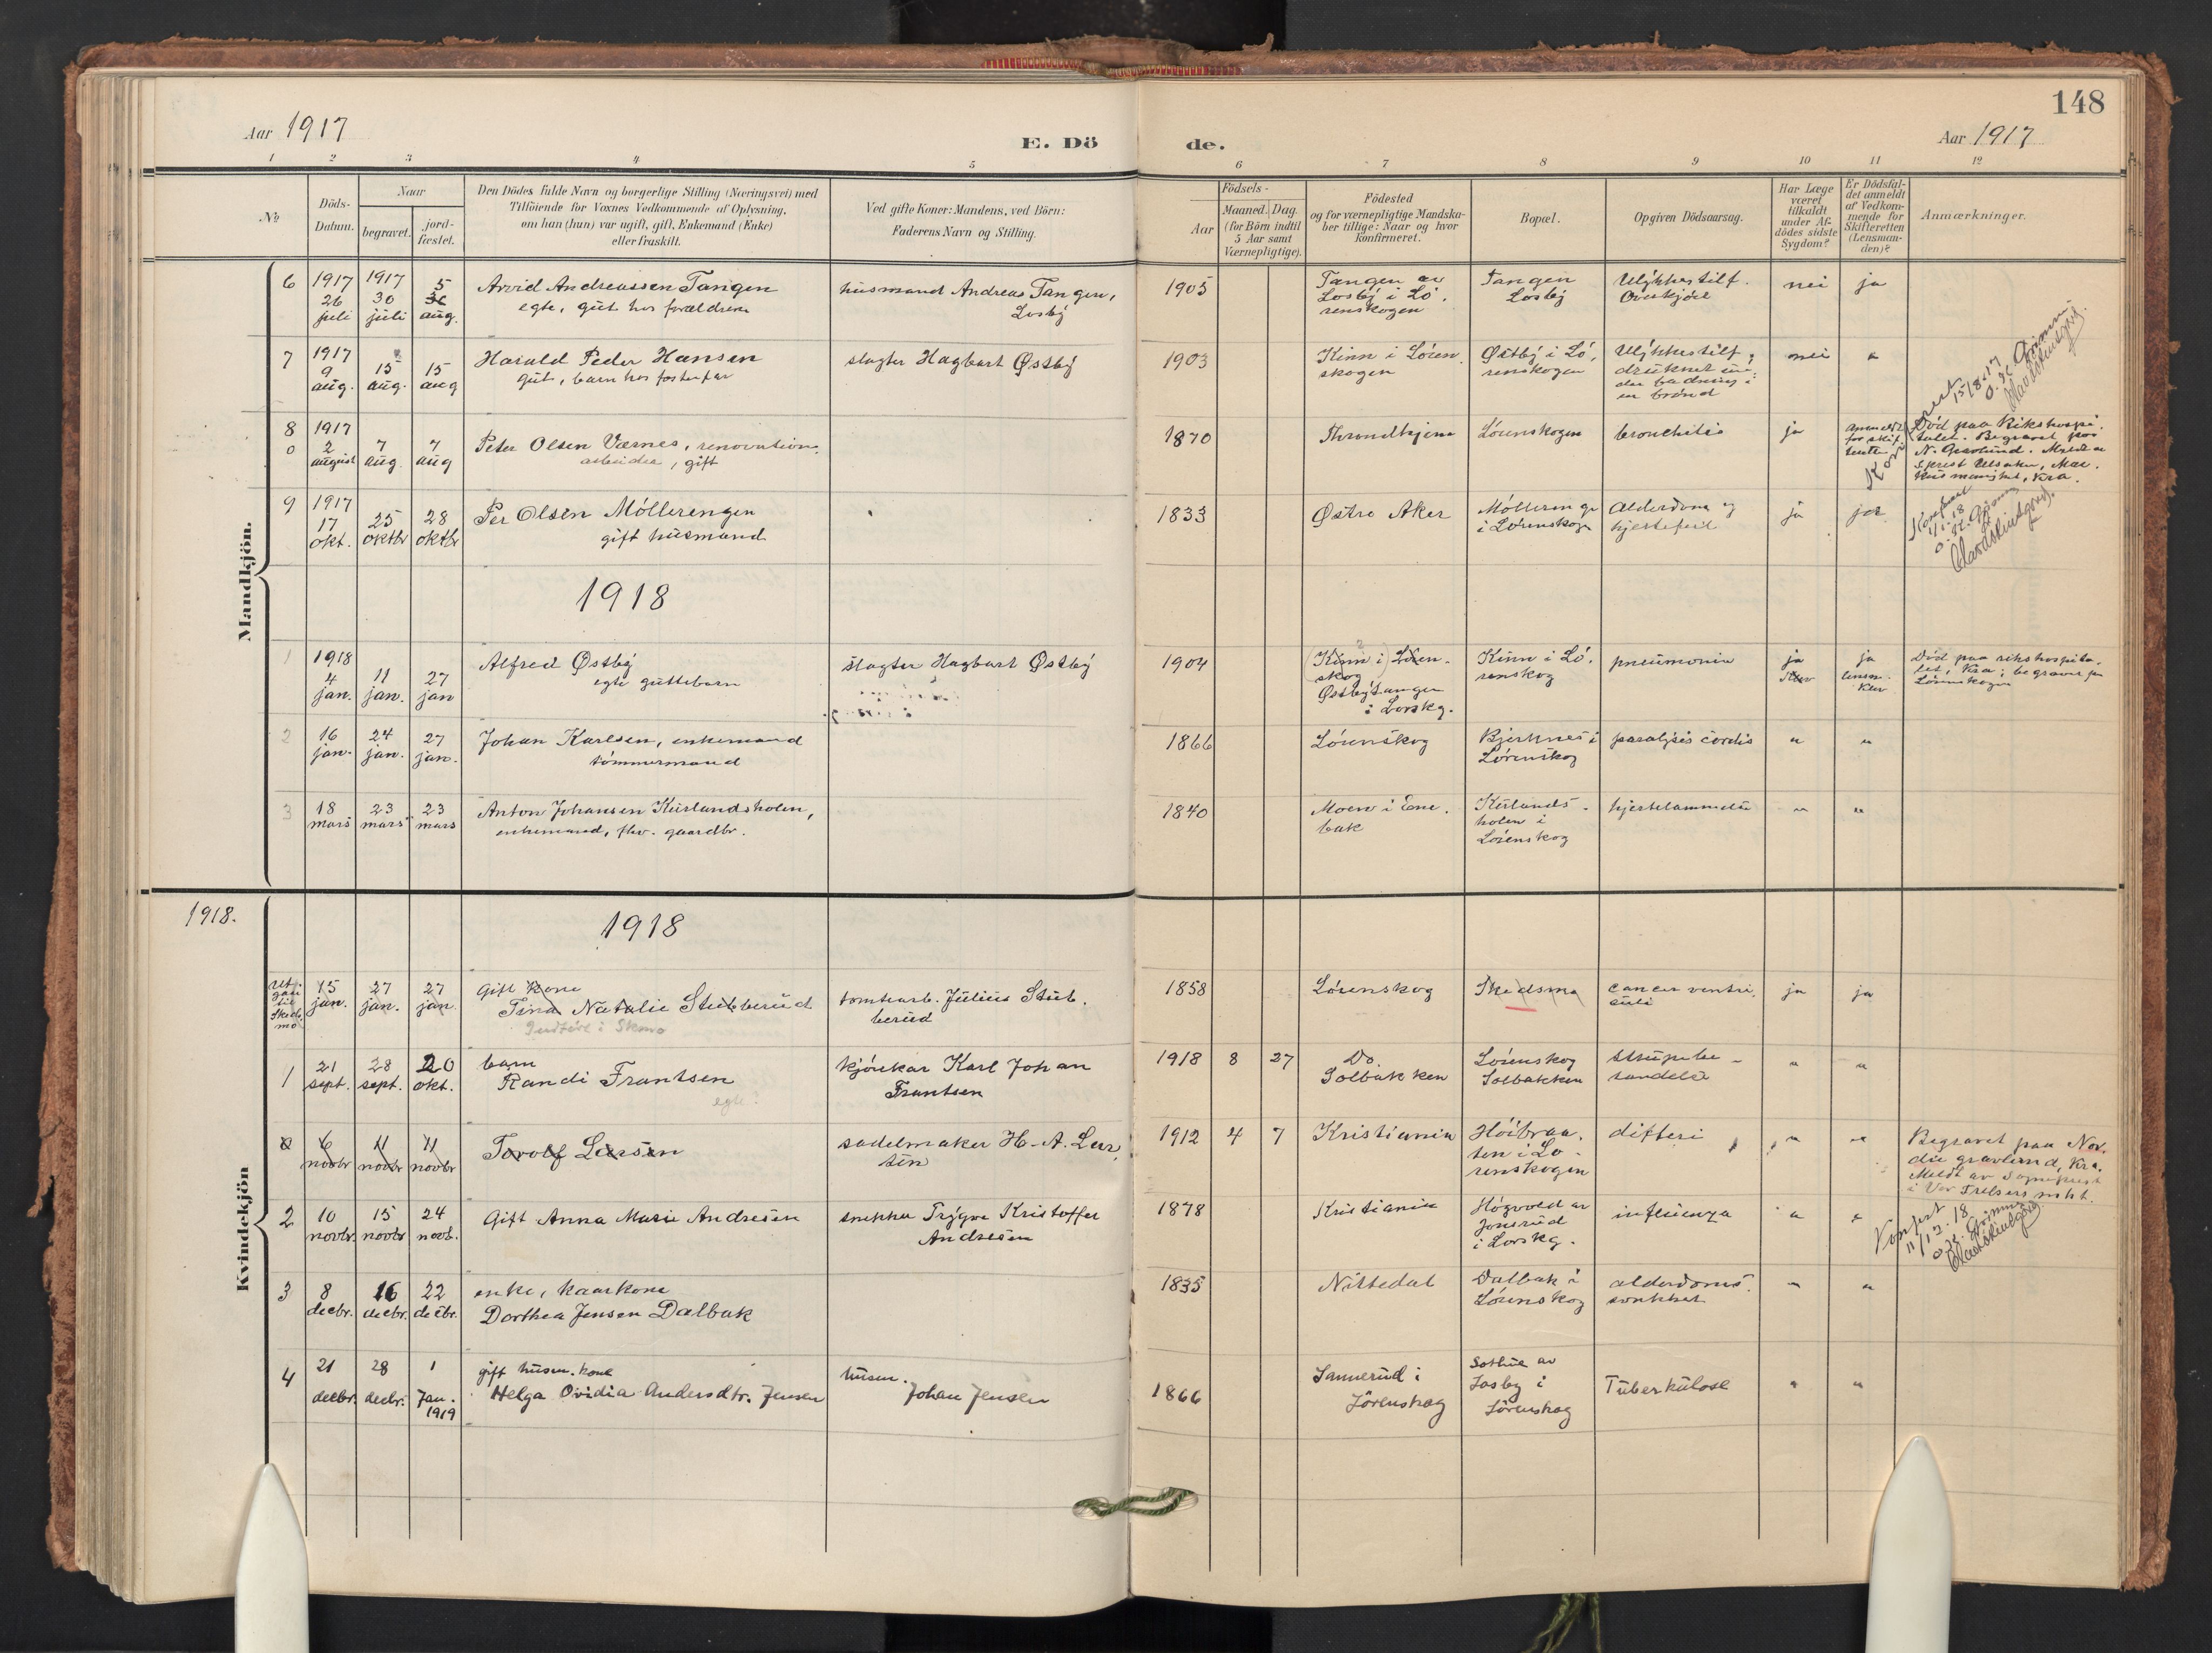 148
Aar 1917
E. Dö
de.
Aar 1917
1 2 3 4 5 6 7 8 9 10 11 12
No
Döds-
Datum.
Naar
begravet.
jord-
fæstet.
Den Dödes fulde Navn og borgerlige Stilling (Næringsvei) med
Tilföiende for Voxnes Vedkommende af Oplysning,
om han (hun) var ugift, gift, Enkemand (Enke)
eller fraskilt.
Ved gifte Koner: Mandens, ved Börn:
Faderens Navn og Stilling.
Födsels-
Aar
Maaned. Dag.
(for Börn indtil
5 Aar samt
Værnepligtige).
Födested
og for værnepligtige Mandska-
ber tillige: Naar og hvor
konfirmeret.
Bopæl.
Opgiven Dödsaarsag.
Har Læge
været
tilkaldt
under Af-
dödes sidste
Sygdom?
Er Dödsfal-
det anmeldt
af Vedkom-
mende for
Skifteretten
(Lensman-
den)?
Anmærkninger.
Mandkjön.
6
1917
26
juli
1917
30
juli
5
aug.
Arvid Andreassen Tangen
egte, gut hos forældrene
husmand Andreas Tangen,
Losby
1905
Tangen av
Losby i Lö-
renskogen
Tangen
Losby
Ulykkestilf.
Overkjöre
nei
ja
7
1917
9
aug.
15
aug.
15
aug
Harald Peder Hansen
gut, barn hos fosterfar
slagter Hagbart Østby
1903
Kinn i Lören-
skogen
Østby i Lö-
renskogen
Ulykkestilf.
druknet un-
der badning i
en brönd
nei
"
15/8.17
8
0
1917
2
august
7
aug.
7
aug
Peter Olsen Værnes, renovations-
arbeider, gift
1870
Throndhjem
Lörenskogen
bronchitis
ja
anmeldt
for skif-
Död paa Rikshospi-
talet. Begravet paa
N. Gravlund. Meldt av
9
1917
17
okt.
25
oktbr
28
oktbr
Per Olsen Möllerengen
gift husmand
1833
Østre Aker
Mölleren ge
i Lörenskogen
Alderdom og
hjertefeil
ja
ja
11-1-18
1918
1
1918
4
jan.
11
jan.
27
jan
Alfred Østby
egte guttebarn
slagter Hagbart Østby
1904
(Kinn i Lören-
skog)
Østbytangen
i Lorskg.
Kinn i Lö-
renskog
pneumonia
ja
ja
lensm.
Död paa rikshospita-
let, Kra; begravet paa
Lörenskogen
2
16
jan.
24
jan.
27
jan.
Johan Karlsen, enkemand
tömmermand
1866
Lörenskog
Bjerknes i
Lörenskog
paralysis cordis
"
"
3
18
mars
23
mars
23
mars
Anton Johansen Kurlandsholen,
enkemand, fhv. gaardbr.
1840
Moen i Ene-
bak
Kurlands-
holen i
Lörenskog
hjertelammelse
"
"
1918.
Kvindekjön
1918
Ut-
gaar
til
Skeds-
mo
15
jan.
27
jan.
27
jan.
Gift Kone
Tina Natalie Stubberud
Indföre i Skmo
tomtearb. Julius Stub-
berud
1858
Lörenskog
Skedsmo
cancer ventri-
culi
ja
ja
1
21
sept.
28
sept.
20
okt.
barn
Randi Frantsen
egte?
kjörekar Karl Johan
Frantsen
1918
8
27
Do
Solbakken
Lörenskog
Solbakken
strupebe-
tændelse
"
"
2
6
novbr
11
novbr
11
novbr
Torolf Larsen
sadelmaker H. A. Lar-
sen
1912
4
7
Kristiania
Höibraa-
ten i Lö-
renskogen
difteri
"
"
Begravet paa Nor-
dre gravlund, Kra.
Meldt av Sogneprest
i Vor Frelsers mht.
2
10
novbr.
15
novbr
24
novb.
Gift Anna Marie Andresen
snekker Trygve Kristoffer
Andresen
1878
Kristiania
Högvold av
Jonsrud
i Lorskg.
influenza
"
"
11/12.18
3
8
decbr.
16
decbr.
22
decbr.
enke, kaarkone
Dorthea Jensen Dalbak
1835
Nittedal
Dalbak i
Lörenskog
alderdoms-
svækket
"
"
4
21
decbr.
28
decbr.
1
Jan.
1919
gift husm. kone
Helga Ovidia Andersdtr. Jensen
husm.
Johan Jensen
1866
Sannerud i
Lörenskog
av
Losby i
Lörenskog
Tuberkulose
"
"